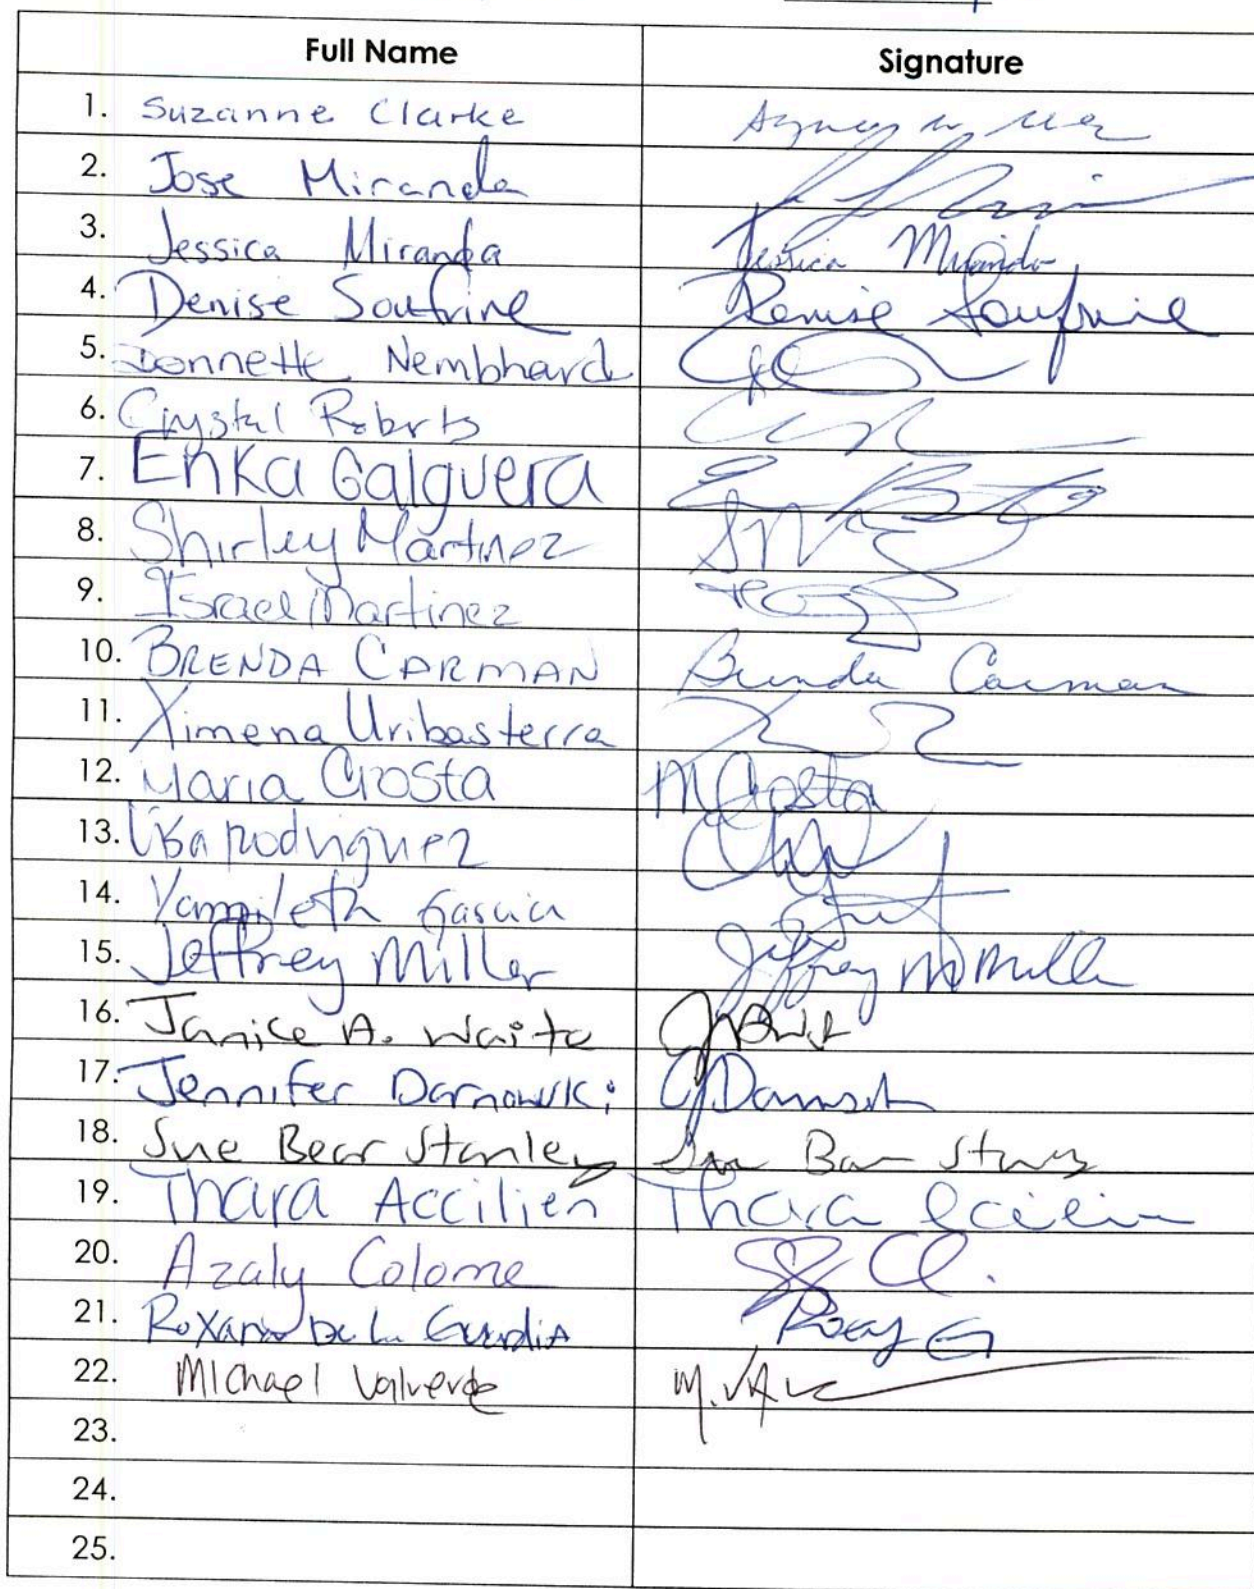 Full Name Signature
1. Suzanne Clarke
2. Jose Miranda
3. Jessica Miranda Jessica Miranda
4. Denise Soufrine Denise Soufrine
5. Donnette Nembhard
6. Crystal Roberts
7. Erika Galguera
8. Shirley Martinez
9. Israel Martinez
10. BRENDA CARMAN Brenda Carman
11. Ximena Uribasterra
12. Maria Acosta M Acosta
13. Lisa Rodriguez
14. Yamileth Garcia
15. Jeffrey Miller Jeffrey M Miller
16. Janice A. Waite
17. Jennifer Darnowski
18. Sue Bear Stanley
19. Thara Accilien Thara
20. Azaly Colome
21. Roxana De La Guardia Roxy G
22. Michael Valverde
23.
24.
25.